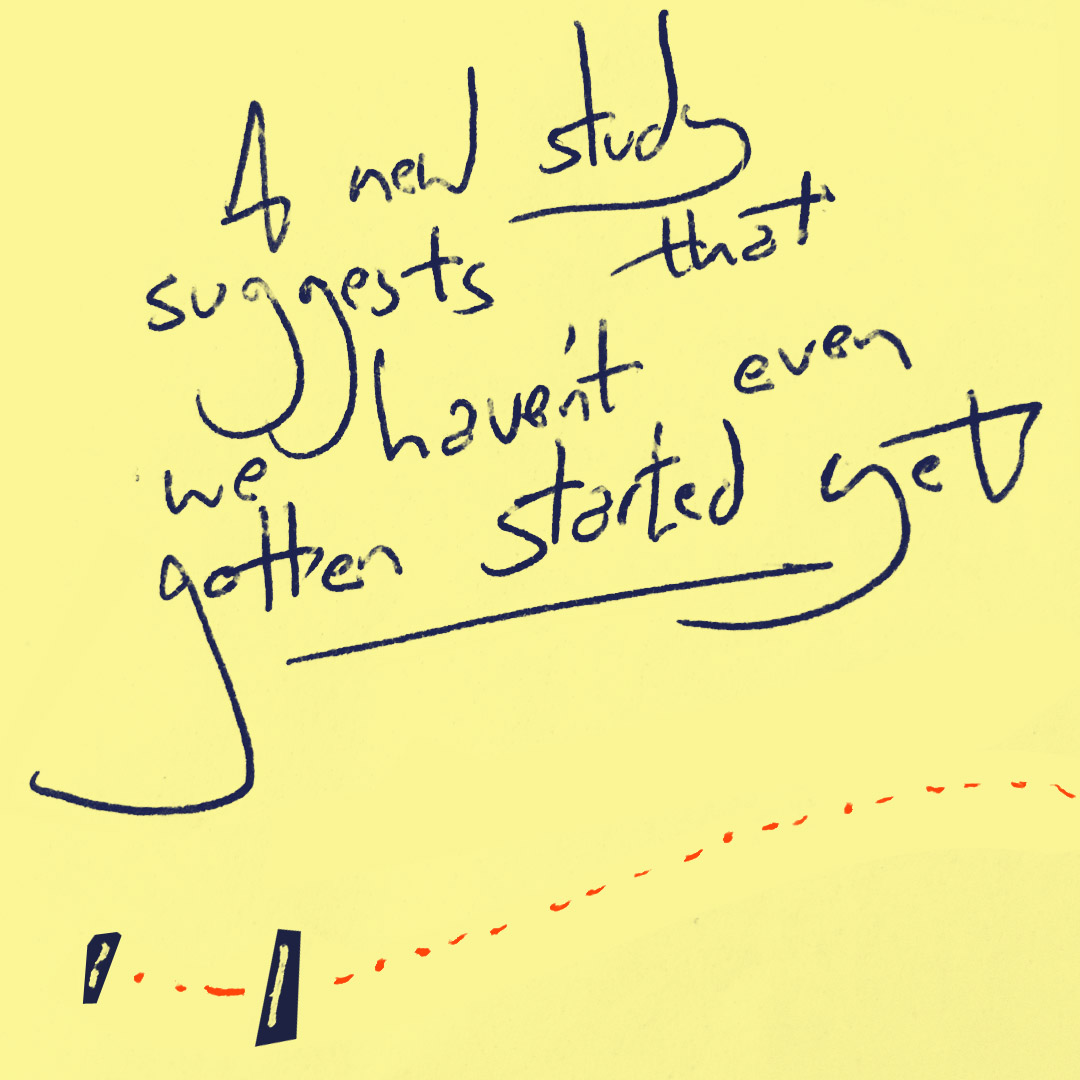 A new study
suggests that
we haven't even
gotten started yet